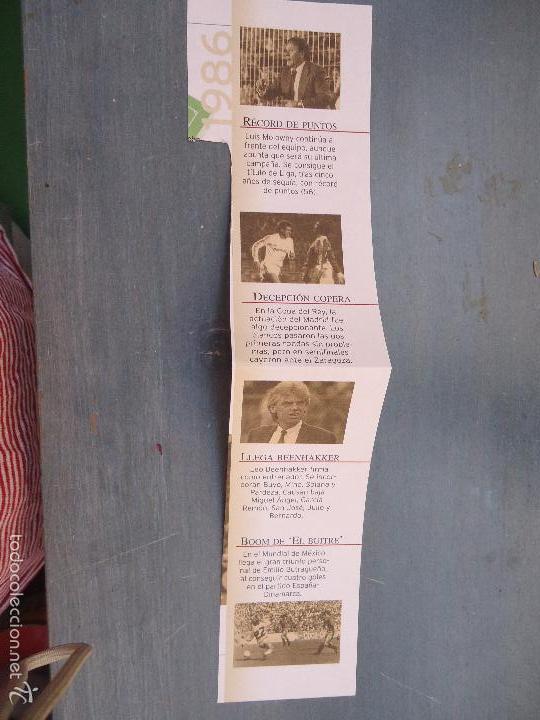 1986
RÉCORD DE PUNTOS
Luis Molowny continúa al
frente del equipo, aunque
apunta que será su última
campaña. Se consigue el
título de Liga, tras cinco
años de sequía, con récord
de puntos (56).
DECEPCIÓN COPERA
En la Copa del Rey, la
actuación del Madrid fue
algo decepcionante. Los
blancos pasaron las dos
primeras rondas sin proble-
mas, pero en semifinales
cayeron ante el Zaragoza.
LLEGA BEENHAKKER
Leo Beenhakker firma
como entrenador. Se incor-
poran Buyo, Mino, Solana y
Pardeza. Causan baja
Miguel Ángel, García
Remón, San José, Julio y
Bernardo.
BOOM DE 'EL BUITRE'
En el Mundial de México
llega el gran triunfo perso-
nal de Emilio Butragueño,
al conseguir cuatro goles
en el partido España-
Dinamarca.
todocoleccion.net